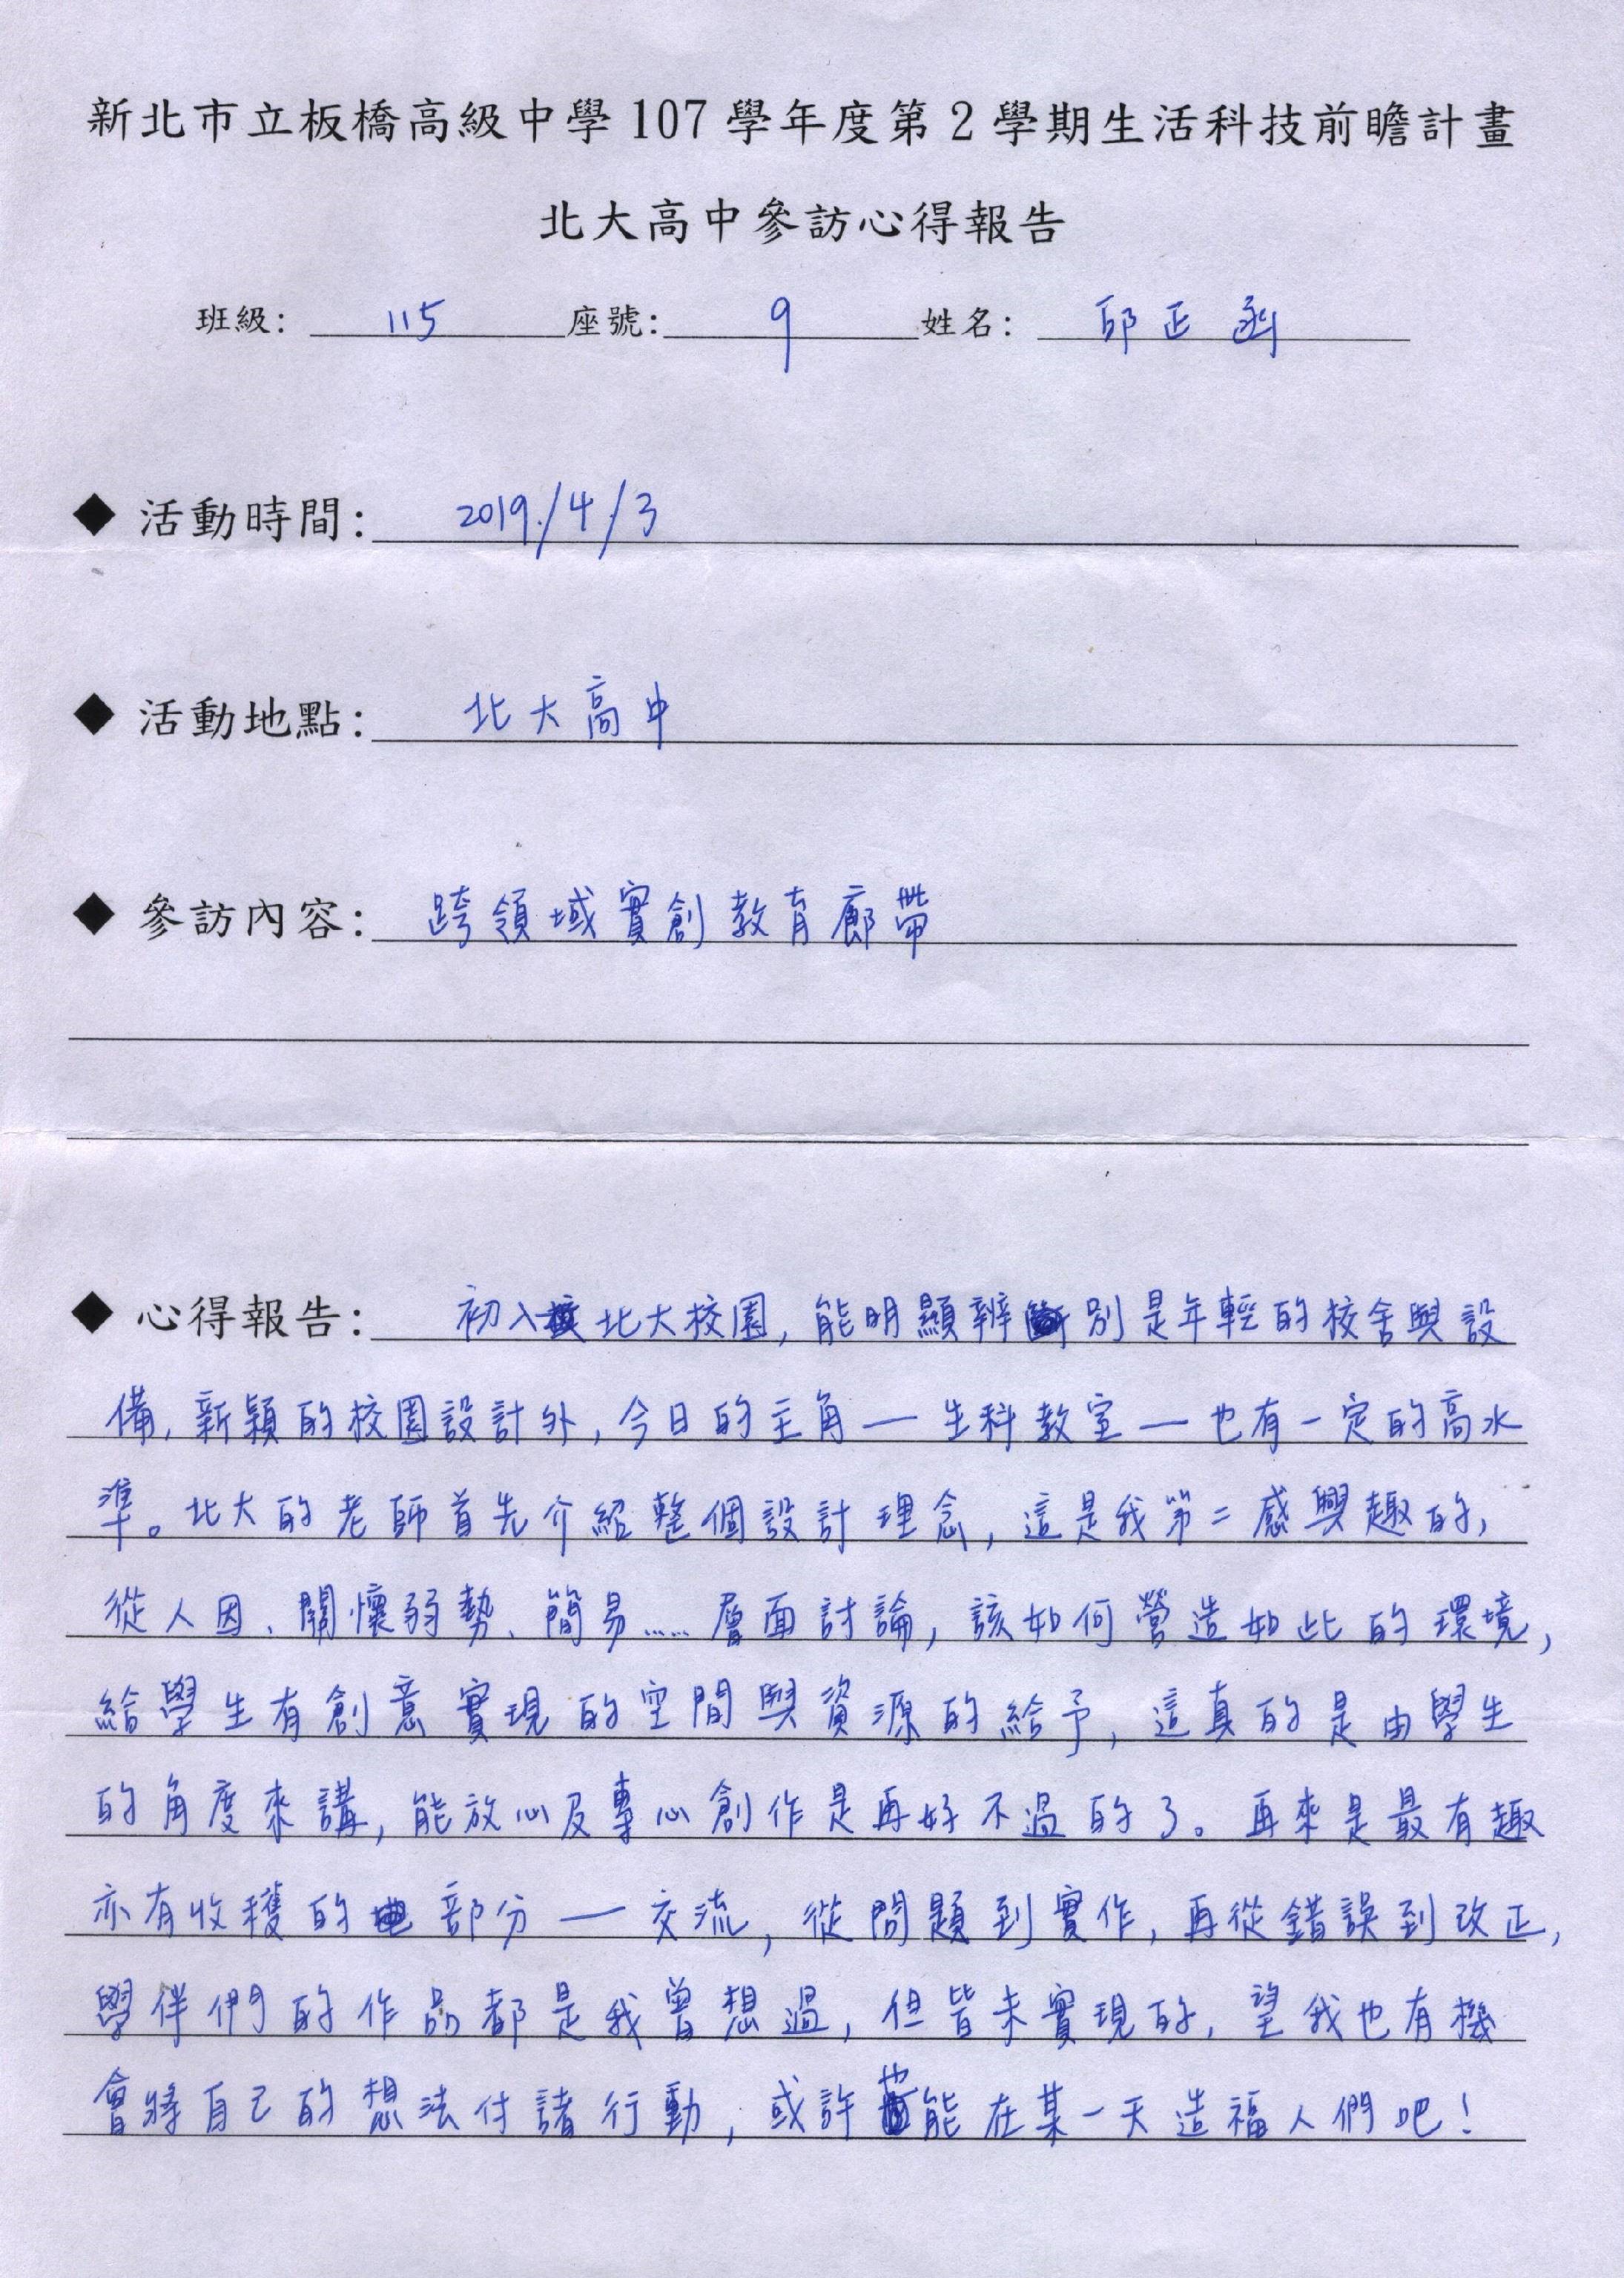 新北市立板橋高級中學107學年度第2學期生活科技前瞻計畫
北大高中參訪心得報告
班級: 115 座號: 9 姓名: 邱正函
◆ 活動時間: 2019/4/3
◆ 活動地點: 北大高中
◆ 參訪內容: 跨領域實創教育廊帶
◆ 心得報告: 初入北大校園,能明顯辨別是年輕的校舍與設
備,新穎的校園設計外,今日的主角—生科教室—也有一定的高水
準。北大的老師首先介紹整個設計理念,這是我第二感興趣的,
從人因、關懷弱勢、簡易……層面討論,該如何營造如此的環境,
給學生有創意實現的空間與資源的給予,這真的是由學生
的角度來講,能放心及專心創作是再好不過的了。再來是最有趣
亦有收穫的部分—交流,從問題到實作,再從錯誤到改正,
學伴們的作品都是我曾想過,但皆未實現的,望我也有機
會將自己的想法付諸行動,或許也能在某一天造福人們吧!